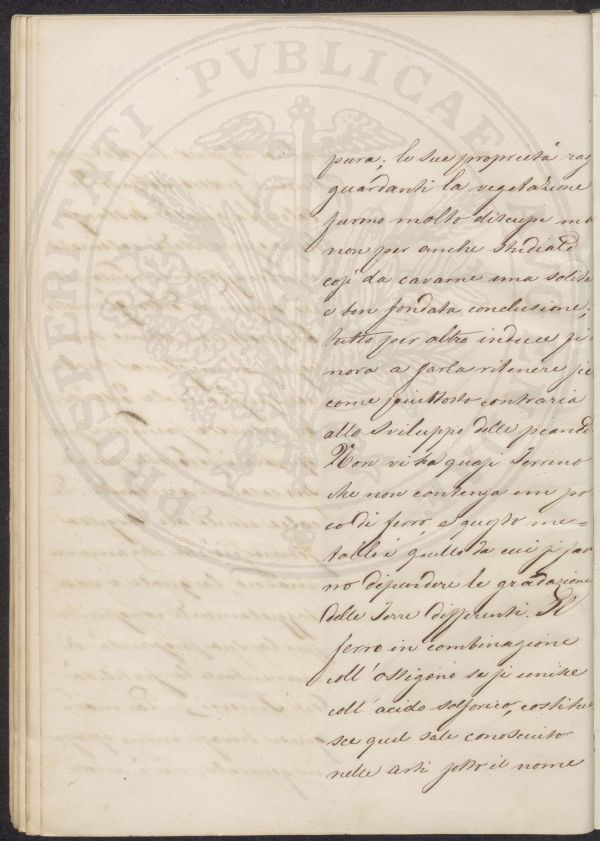 PROSPERITATI PVBLICAE
pura; le sue proprietà rag
guardanti la vegetazione
furono molto discusse ma
non per anche studiate
così da cavarne una solida
e ben fondata conclusione,
tutto per altro induce fi
nora a farla ritenere
come piuttosto contraria
allo sviluppo delle piante.
Non vi ha quasi Terreno
che non contenga un po
co di ferro, e questo me=
tallo è quello da cui si fan
no dipendere le gradazione
delle Terre differenti. Il
ferro in combinazione
coll'ossigeno se si unisce
coll'acido solforico, costitui
sce quel sale conosciuto
nelle arti sotto il nome